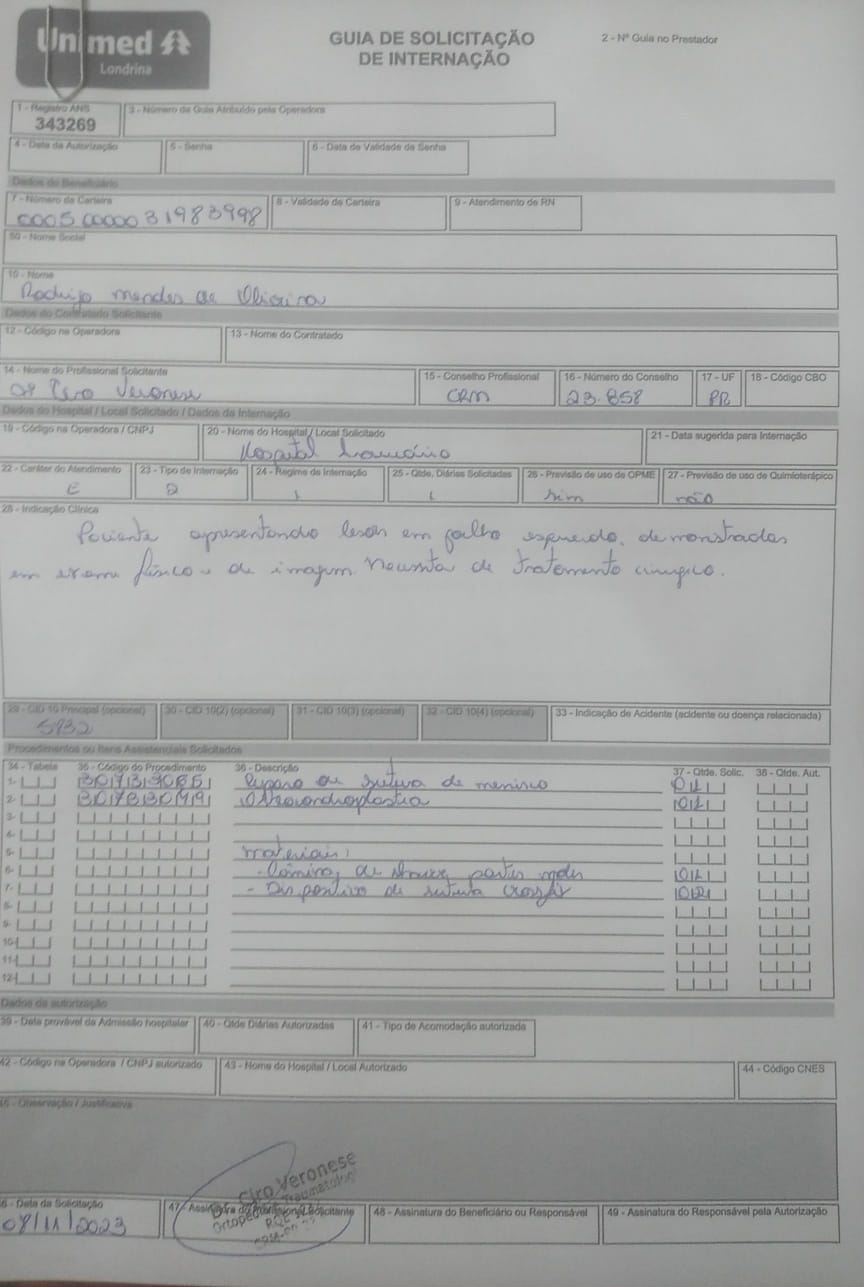 Unimed
Londrina
GUIA DE SOLICITAÇÃO
DE INTERNAÇÃO
2 - Nº Guia no Prestador
1 - Registro ANS
343269
3 - Número da Guia Atribuído pela Operadora
4 - Data da Autorização
5 - Senha
6 - Data de Validade da Senha
Dados do Beneficiário
7 - Número da Carteira
0005 00000 31983998
8 - Validade da Carteira
9 - Atendimento de RN
50 - Nome Social
10 - Nome
Rodrigo mendes de Oliveira
Dados do Contratado Solicitante
12 - Código na Operadora
13 - Nome do Contratado
14 - Nome do Profissional Solicitante
Dr Ciro Veronese
15 - Conselho Profissional
CRM
16 - Número do Conselho
23.858
17 - UF
PR
18 - Código CBO
Dados do Hospital / Local Solicitado / Dados da Internação
19 - Código na Operadora / CNPJ
20 - Nome do Hospital / Local Solicitado
Hospital
21 - Data sugerida para Internação
22 - Caráter do Atendimento
E
23 - Tipo de Internação
2
24 - Regime de Internação
1
25 - Qtde. Diárias Solicitadas
1
26 - Previsão de uso de OPME
sim
27 - Previsão de uso de Quimioterápico
não
28 - Indicação Clínica
Paciente apresentando lesão em joelho esquerdo, demonstradas
em exame físico e de imagem. Necessita de tratamento cirurgico.
29 - CID 10 Principal (opcional)
S832
30 - CID 10(2) (opcional)
31 - CID 10(3) (opcional)
32 - CID 10(4) (opcional)
33 - Indicação de Acidente (acidente ou doença relacionada)
Procedimentos ou Itens Assistenciais Solicitados
34 - Tabela
35 - Código do Procedimento
36 - Descrição
37 - Qtde. Solic.
38 - Qtde. Aut.
1- Reparo ou sutura de menisco 01
2- Osteocondroplastia 01
3-
4-
5- materiais:
6- - Lâmina de shaver partes moles 01
7- - Dispositivo de sutura crossfix 02
8-
9-
10-
11-
12-
Dados da autorização
39 - Data provável da Admissão hospitalar
40 - Qtde Diárias Autorizadas
41 - Tipo de Acomodação autorizada
42 - Código na Operadora / CNPJ autorizado
43 - Nome do Hospital / Local Autorizado
44 - Código CNES
45 - Observação / Justificativa
Dr. Ciro Veronese
Ortopedia Traumatologia
46 - Data da Solicitação
08/11/2023
47 - Assinatura do Profissional Solicitante
48 - Assinatura do Beneficiário ou Responsável
49 - Assinatura do Responsável pela Autorização